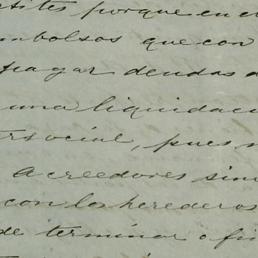 porque en e
mbolsos que con
pagar deudas a
una liquidac
social, pues
Acreedores sin
con los herederos
de terminar o fi